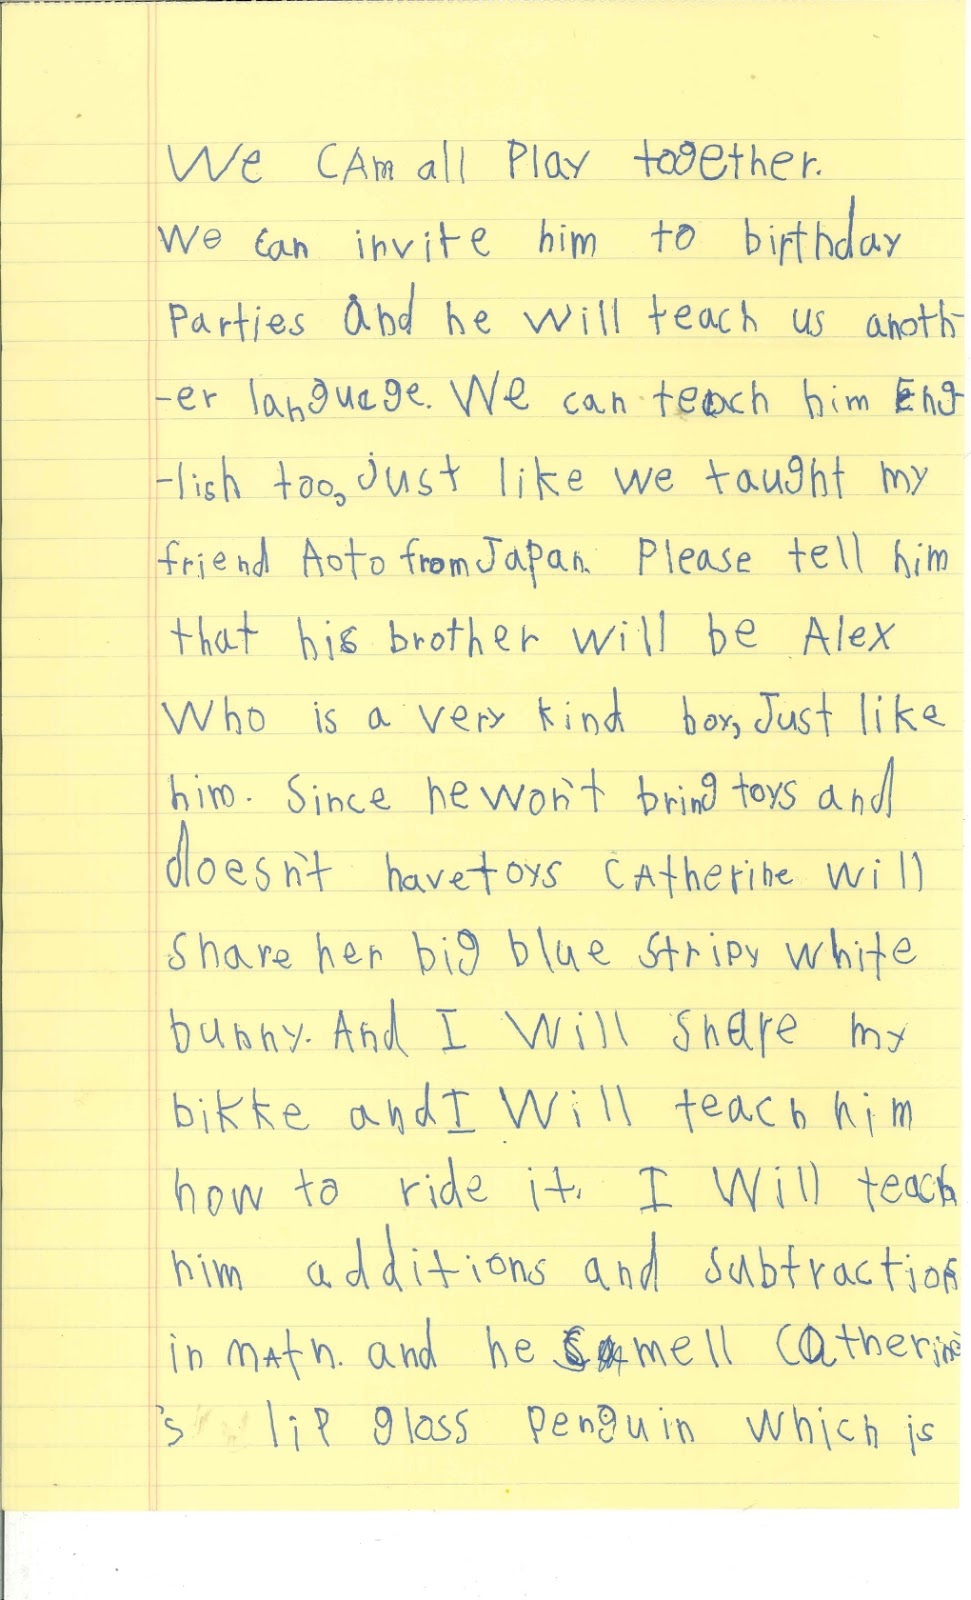 We CAm all Play together.
We can invite him to birthday
Parties And he will teach us anoth-
-er language. We can teach him Eng
-lish too, just like we taught my
friend Aoto from Japan. Please tell him
that his brother will be Alex
Who is a very kind boy, Just like
him. Since he won't bring toys and
doesn't have toys CAtherine will
Share her big blue stripy white
bunny. And I Will share my
bikke and I Will teach him
how to ride it. I Will teach
him additions and subtraction
in mAth. and he smell Catherine
's lip gloss penguin which is